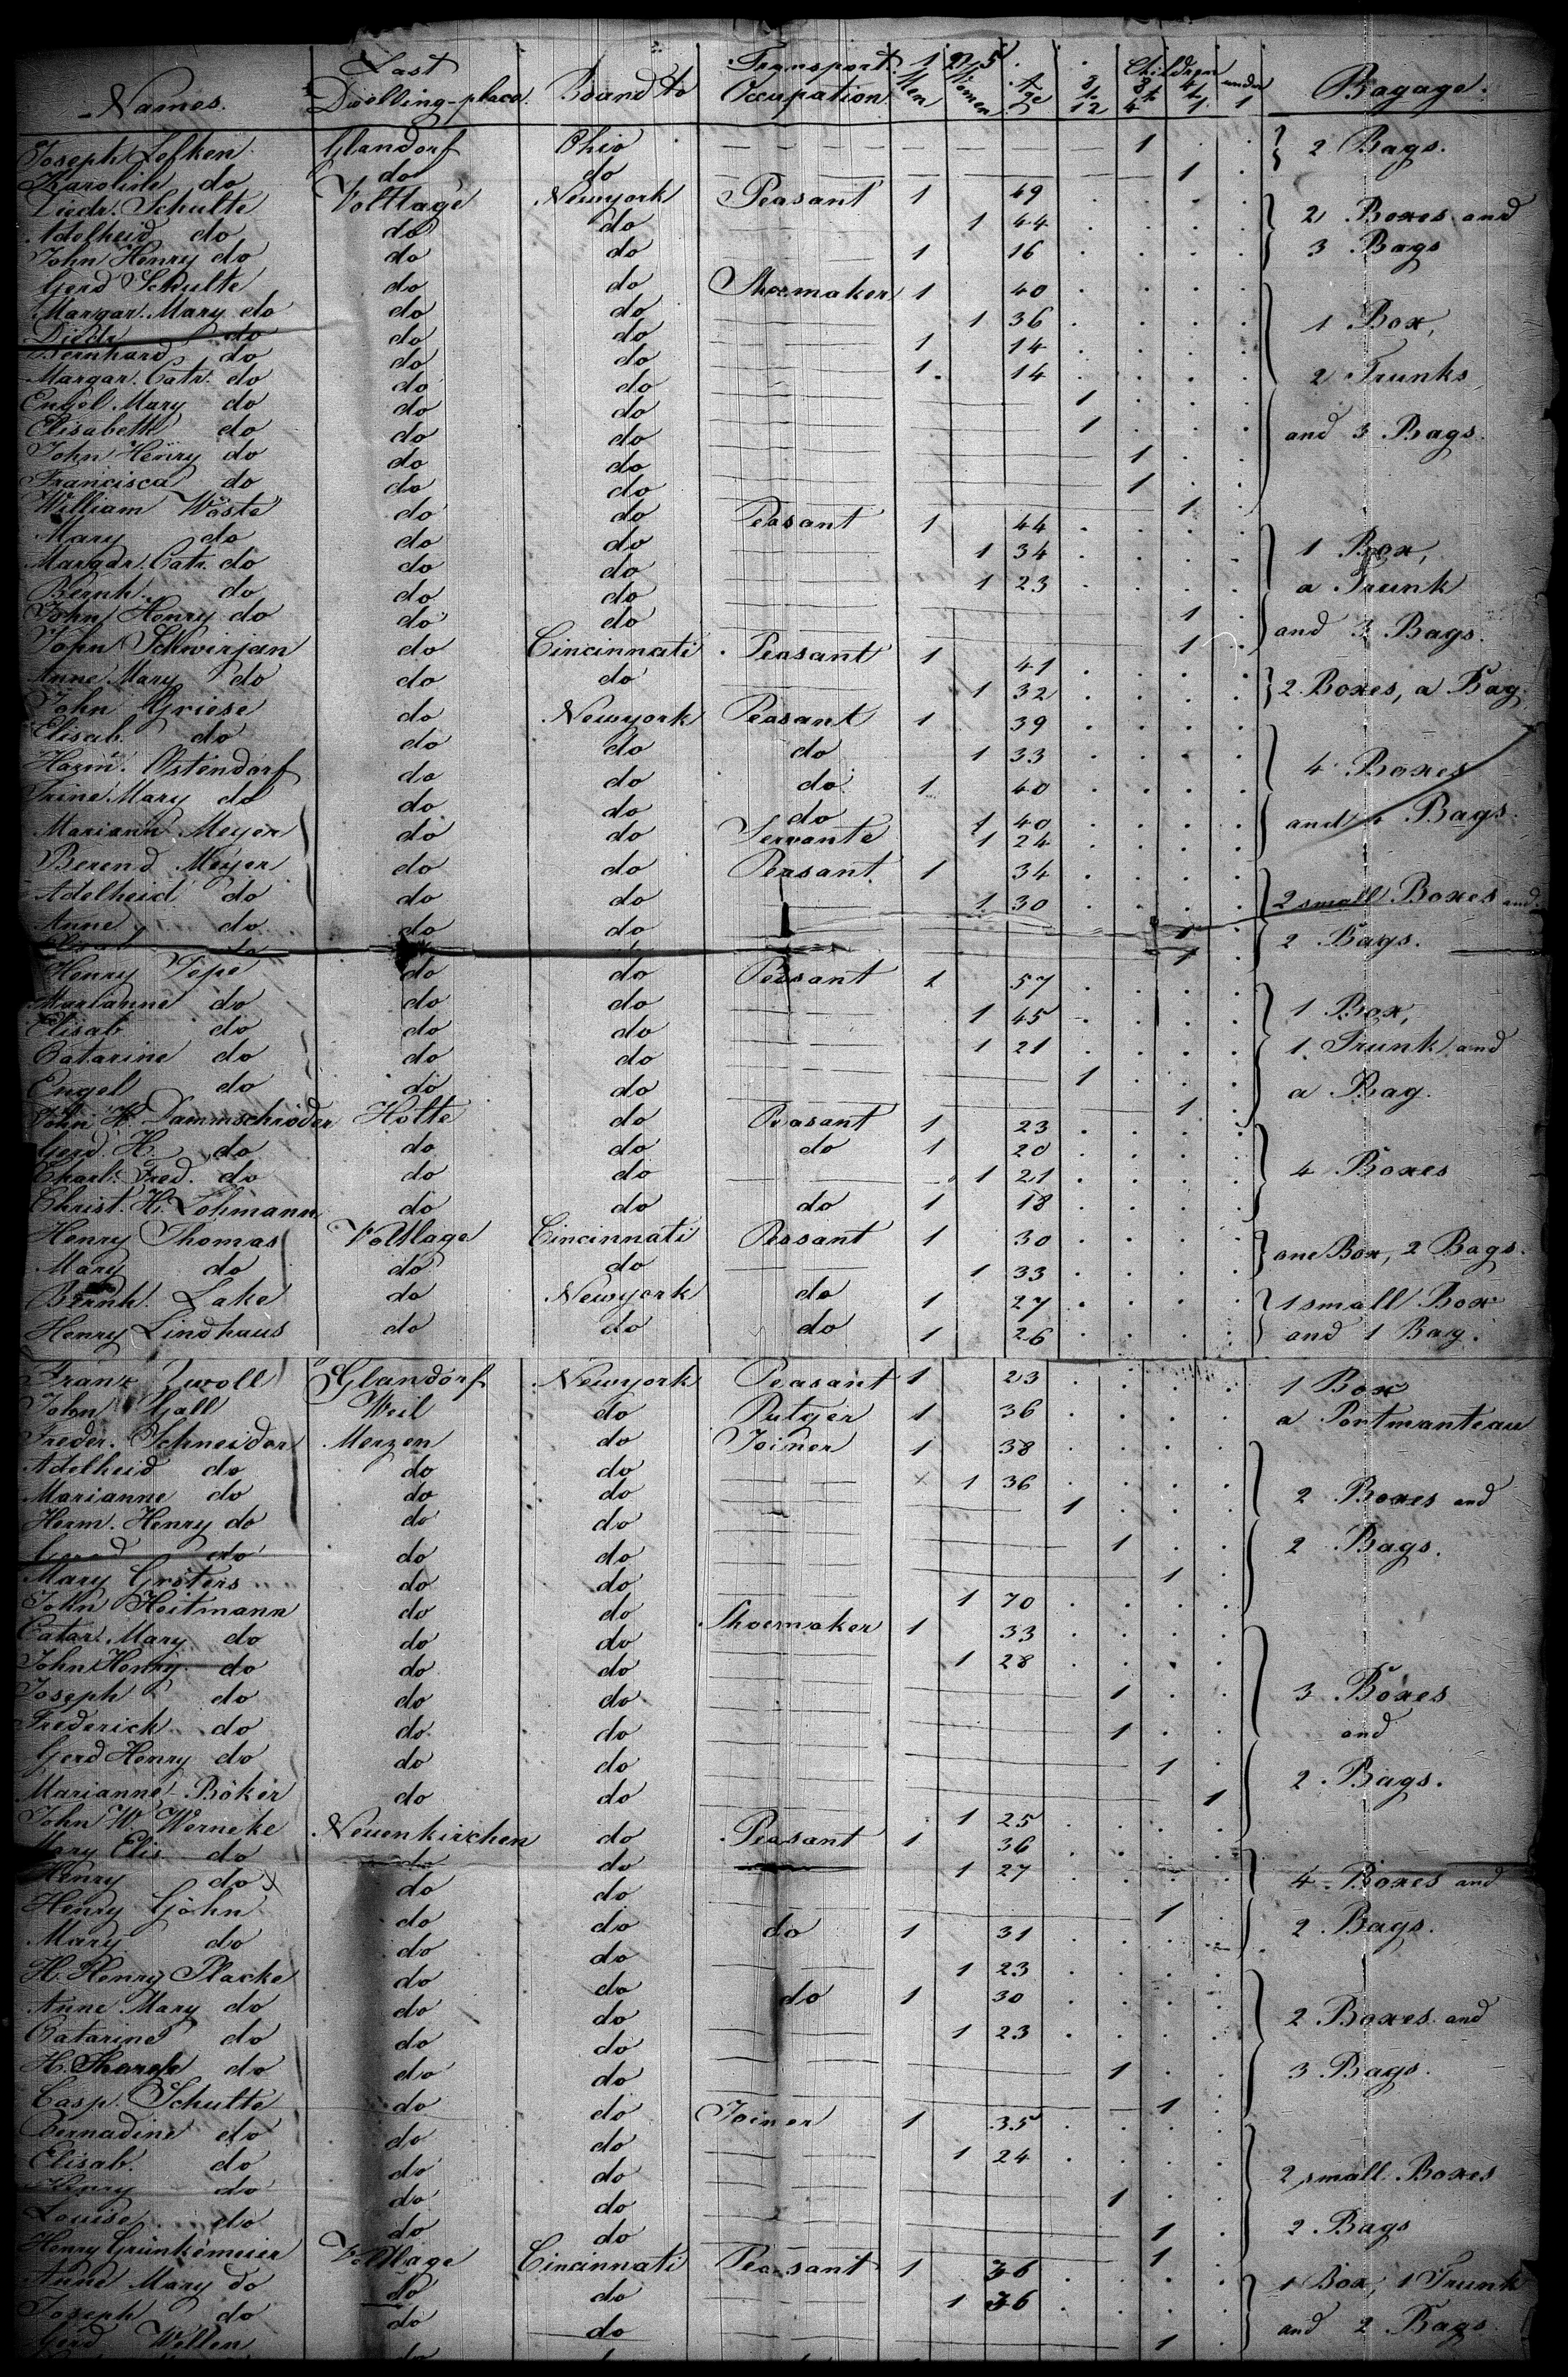 Transport. 1 2 5
Names. Last Dwelling-place. Board to Occupation Men Women Age Children 8 to 12 4 to 8 1 to 4 under 1 Bagage.
Joseph Lefken Glandorf Ohio 1 2 Bags.
Karoline do do do 1
Diedr. Schulte Voltlage Newyork Peasant 1 49 2 Boxes and
Adelheid do do do 1 44
John Henry do do do 1 16 3 Bags
Gerd Schulte do do Shoemaker 1 40
Margar. Mary do do do 1 36 1 Box,
Diedr. do do do 1 14
Bernhard do do do 1. 14 2 Trunks
Margar. Catr. do do do 1
Engel Mary do do do 1 and 3 Bags.
Elisabeth do do do 1
John Henry do do do 1
Francisca do do do 1
William Wöste do do Peasant 1 44
Mary do do do 1 34 1 Box,
Margar. Catr. do do do 1 23 a Trunk
Bernh. do do do 1
John Henry do do do 1 and 3 Bags.
John Schwirjan do Cincinnati Peasant 1 41
Anne Mary do do do 1 32 2 Boxes, a Bag
John Griese do Newyork Peasant 1 39
Elisab. do do do do 1 33
Harm. Ostendorf do do do 1 40 4 Boxes
Trine Mary do do do do 1 40
Mariann Meyer do do Servante 1 24 and Bags.
Berend Meyer do do Peasant 1 34
Adelheid do do do 1 30 2 small Boxes and
Anne do do do 1 2 Bags.
Elisab. do do 1
Henry Tope do do Peasant 1 57
Marianne do do do 1 45 1 Box,
Elisab do do do 1 21 1 Trunk and
Catarine do do do 1
Engel do do do 1 a Bag.
John H. Dammschröder Holte do Peasant 1 23
Gerd. H. do do do do 1 20
Charl. Fred. do do do 1 21 4 Boxes
Christ. H. Lohmann do do do 1 18
Henry Thomas Voltlage Cincinnati Peasant 1 30 one Box, 2 Bags.
Mary do do do 1 33
Bernh. Lake do Newyork do 1 27 1 small Box
Henry Lindhaus do do do 1 26 and 1 Bag.
Franz Zwoll Glandorf Newyork Peasant 1 23 1 Box
John Gall Weil do 1 36 a Portmanteau
Freder. Schneider Merzen do Joiner 1 38
Adelheid do do do 1 36
Marianne do do do 1 2 Boxes and
Herm. Henry do do do 1
Gerad do do do 1 2 Bags.
Mary Gröters do do 1 70
John Heitmann do do Shoemaker 1 33
Catar. Mary do do do 1 28
John Henry do do do 1 3 Boxes
Joseph do do do 1 and
Frederick do do do 1
Gerd Henry do do do 1 2 Bags.
Marianne Böker do do 1 25
John W. Werneke Neuenkirchen do Peasant 1 36
Mary Elis do do do 1 27 4 Boxes and
Henry do do do 1
Henry Göhn do do do 1 31 2 Bags.
Mary do do do 1 23
H. Henry Placke do do do 1 30
Anne Mary do do do 1 23 2 Boxes and
Catarine do do do 1
H. do do do 1 3 Bags.
Casp. Schulte do do Joiner 1 35
Bernadine do do do 1 24
Elisab. do do do 1 2 small Boxes
Henry do do do 1
Louise do do do 1 2 Bags
Henry Grünkemeier Voltlage Cincinnati Peasant 1 36
Anne Mary do do do 1 36 1 Box, 1 Trunk
Joseph do do do 1 and 2 Bags
Gerd Wellen